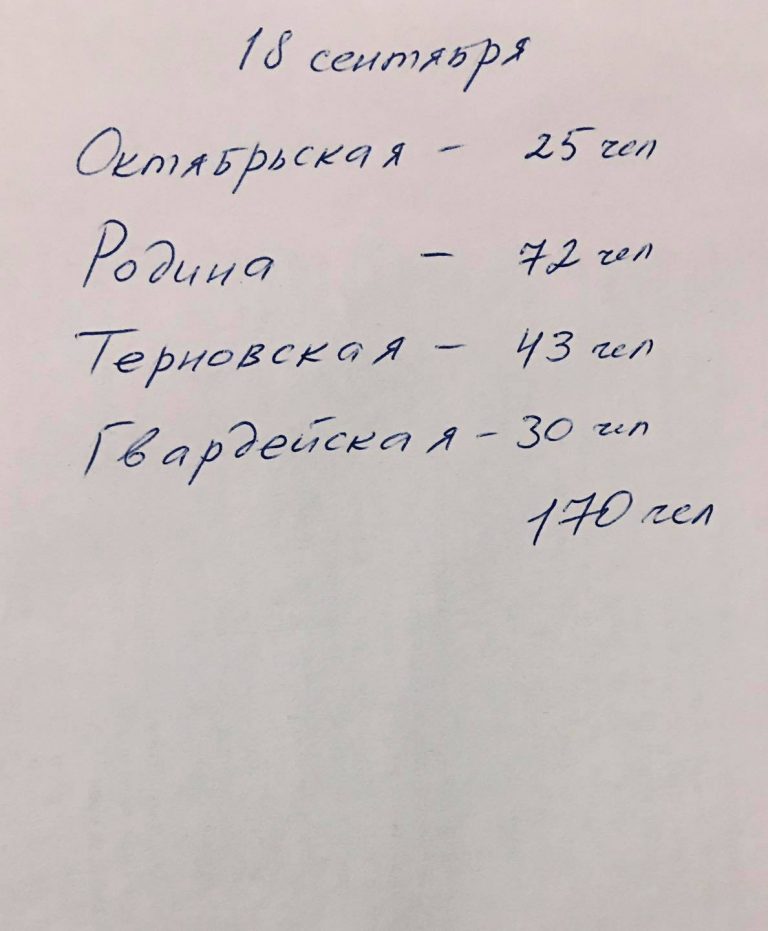 18 сентября
Октябрьская - 25 чел
Родина - 72 чел
Терновская - 43 чел
Гвардейская - 30 чел
170 чел